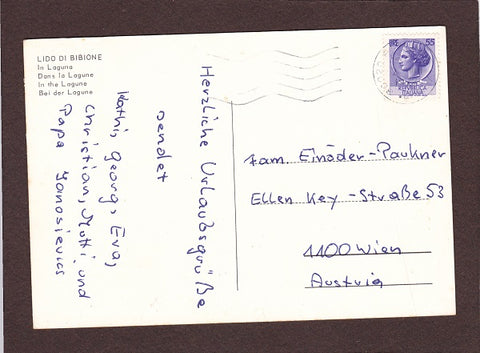 LIDO DI BIBIONE
In Laguna
Dans la Lagune
In the Lagune
Bei der Lagune
Herzliche Urlaubsgrüße
sendet
Kathi, Georg, Eva,
Christian, Mutti und
Papa Janosievics
LIRE 55
REPUBBLICA
ITALIANA
Fam. Einöder-Paukner
Ellen Key-Straße 53
1100 Wien
Austria